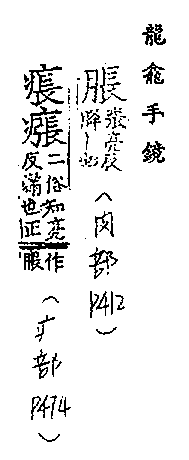 龍龕手鏡
脹 張亮反 丨也（肉部 P412）
痮瘬 二俗知亮反滿也正作脹（疒部 P474）